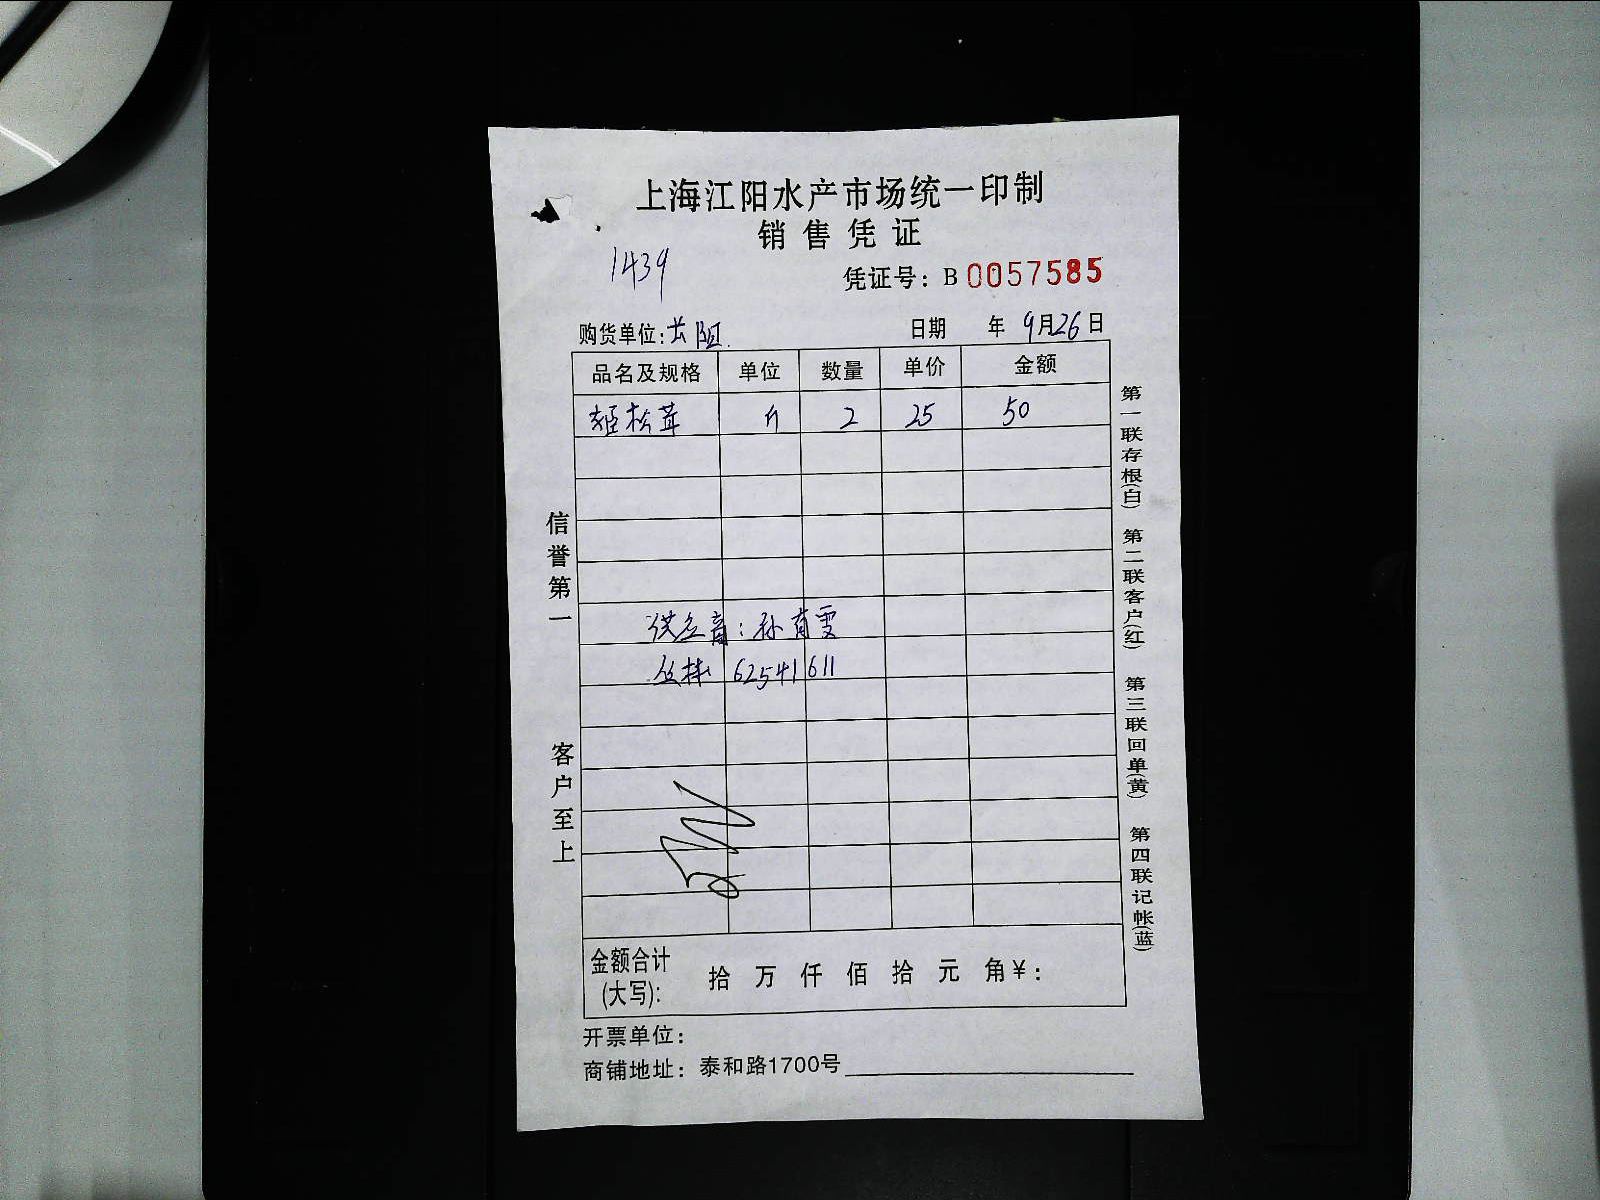 上海江阳水产市场统一印制
销售凭证
1439
凭证号：B 0057585
购货单位：长阳
日期 年 9月26日
品名及规格 单位 数量 单价 金额
姬松茸 斤 2 25 50
孙育雯
62541611
信誉第一
客户至上
第一联存根(白) 第二联客户(红) 第三联回单(黄) 第四联记帐(蓝)
金额合计
(大写)： 拾 万 仟 佰 拾 元 角 ¥：
开票单位：
商铺地址：泰和路1700号